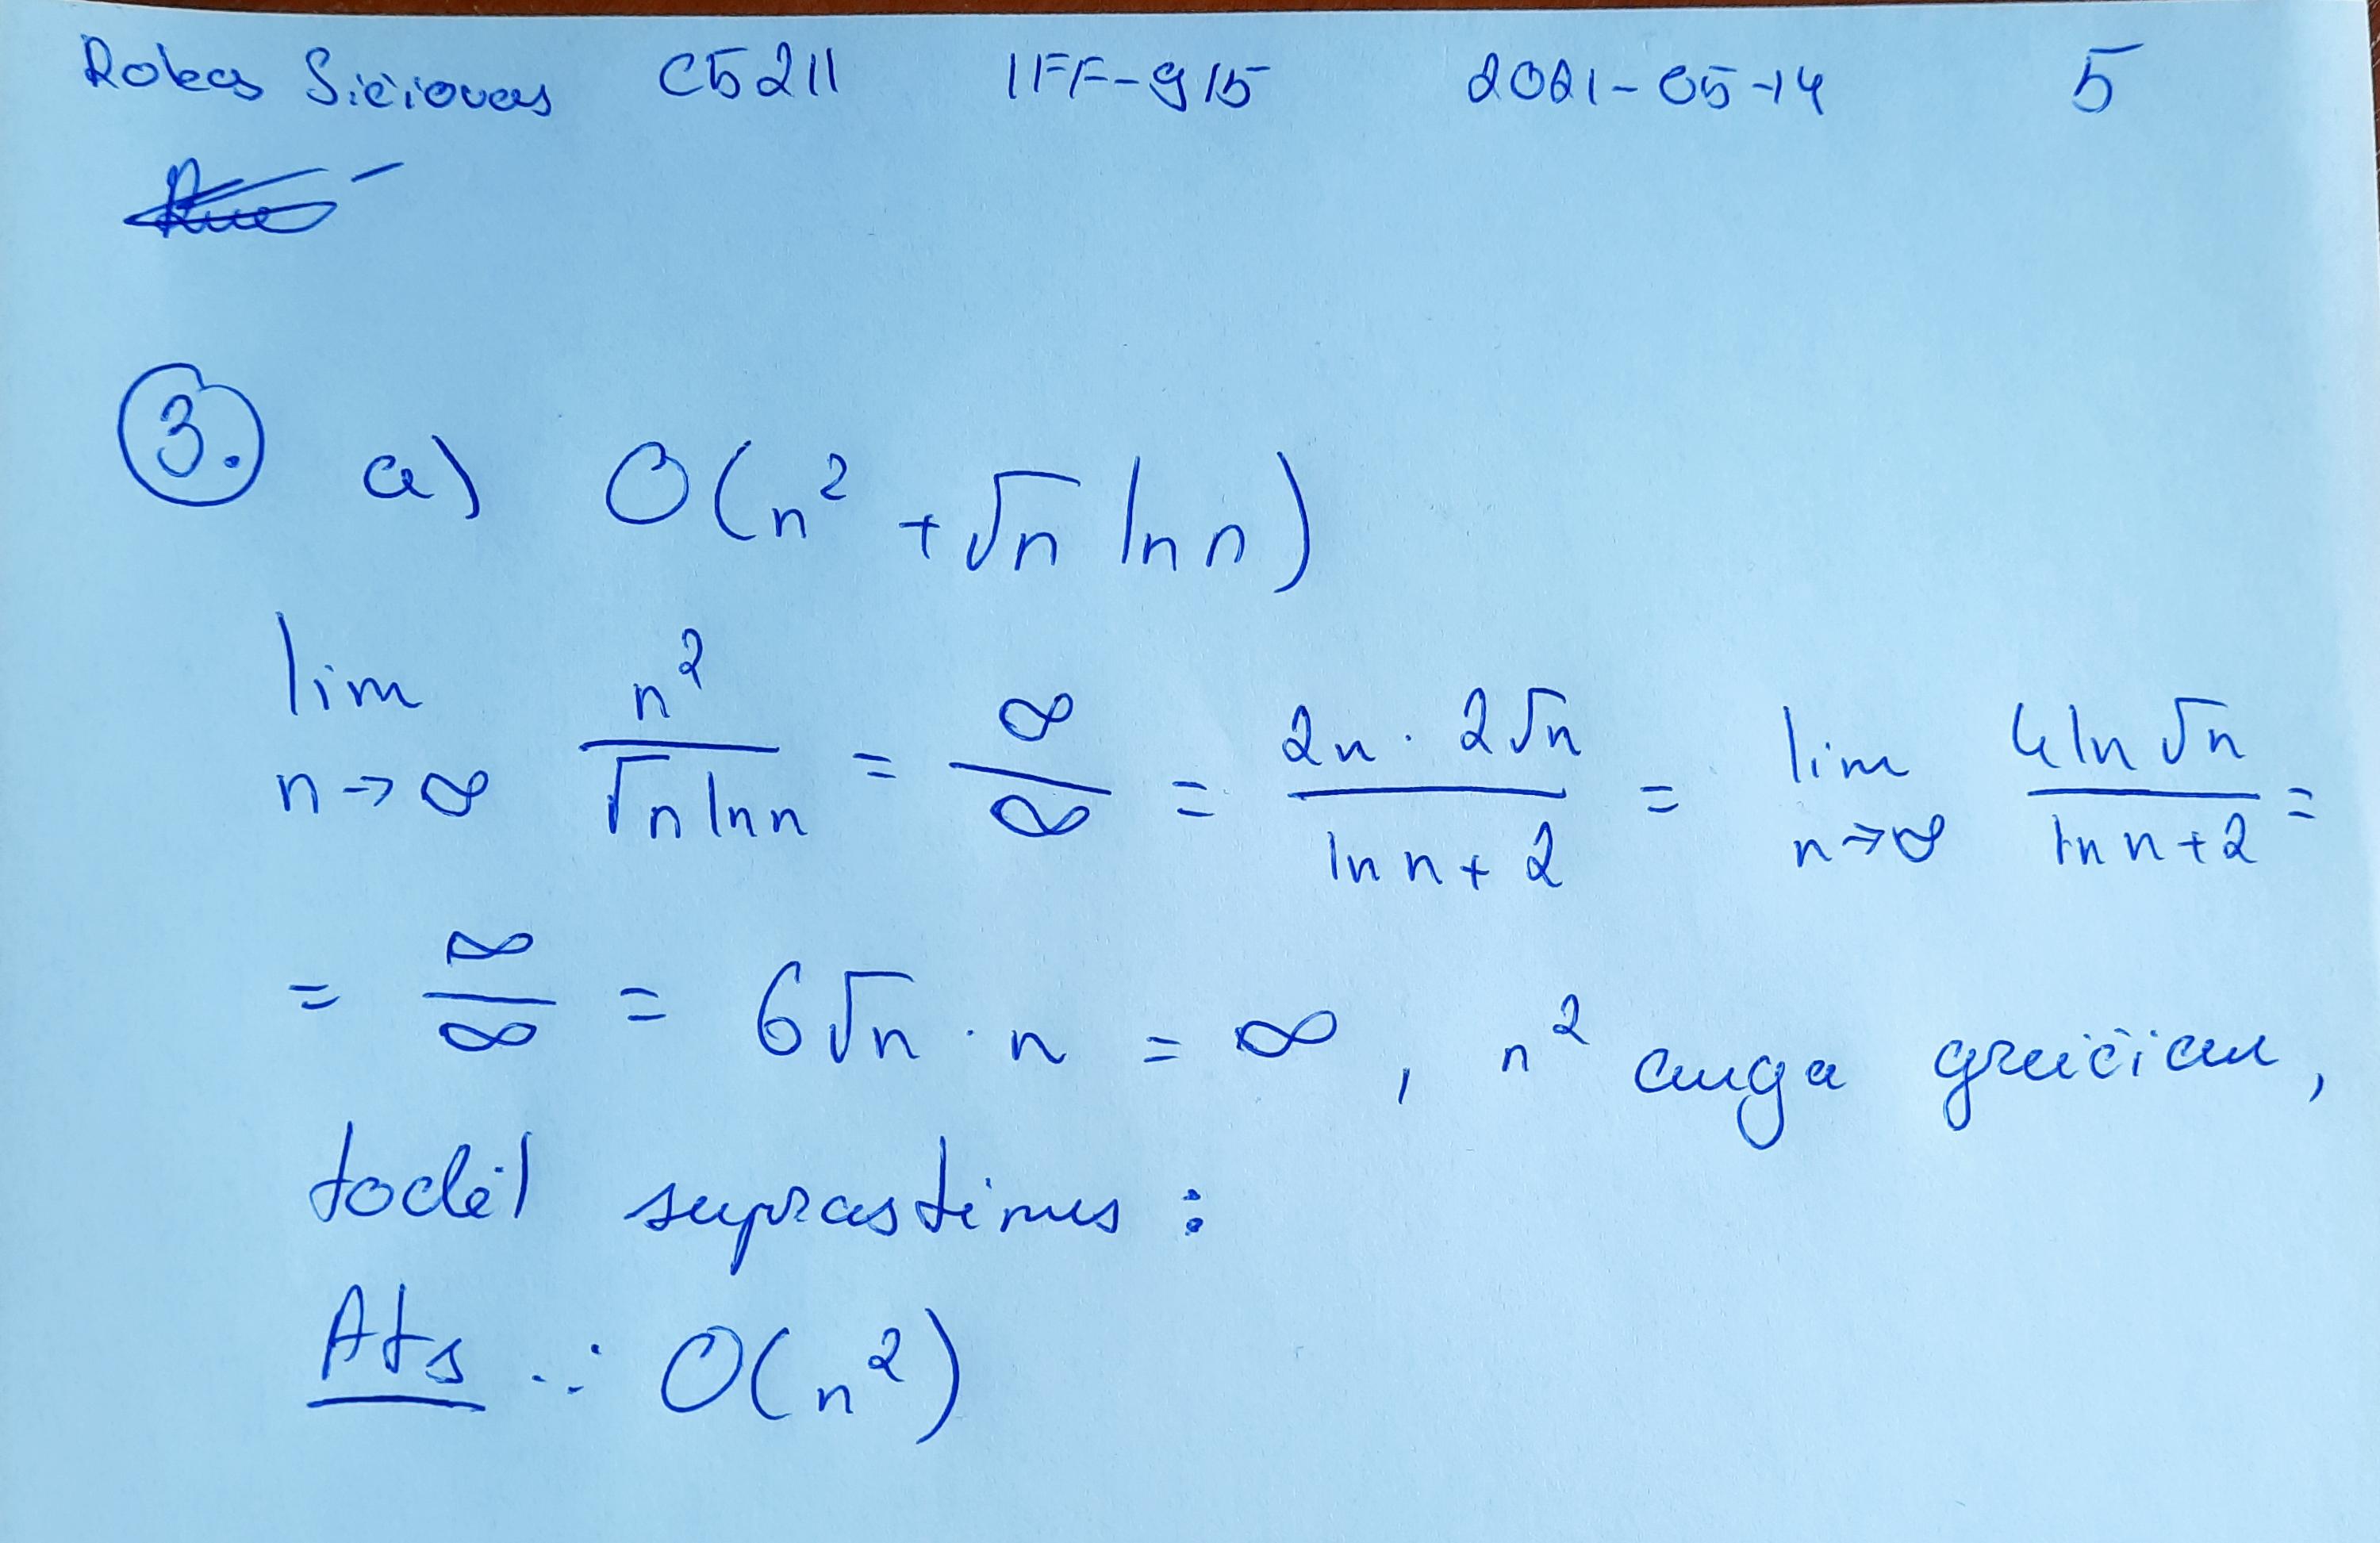 Rokas Sičiovas C5211 IFF-9/5 2021-05-14 5
3. a) O(n² + √n ln n)
lim n→∞ n²/(√n ln n) = ∞/∞ = (2n · 2√n)/(ln n + 2) = lim n→∞ (4n√n)/(ln n + 2) =
= ∞/∞ = 6√n · n = ∞, n² auga greičiau,
todėl suprastinus:
Ats.: O(n²)